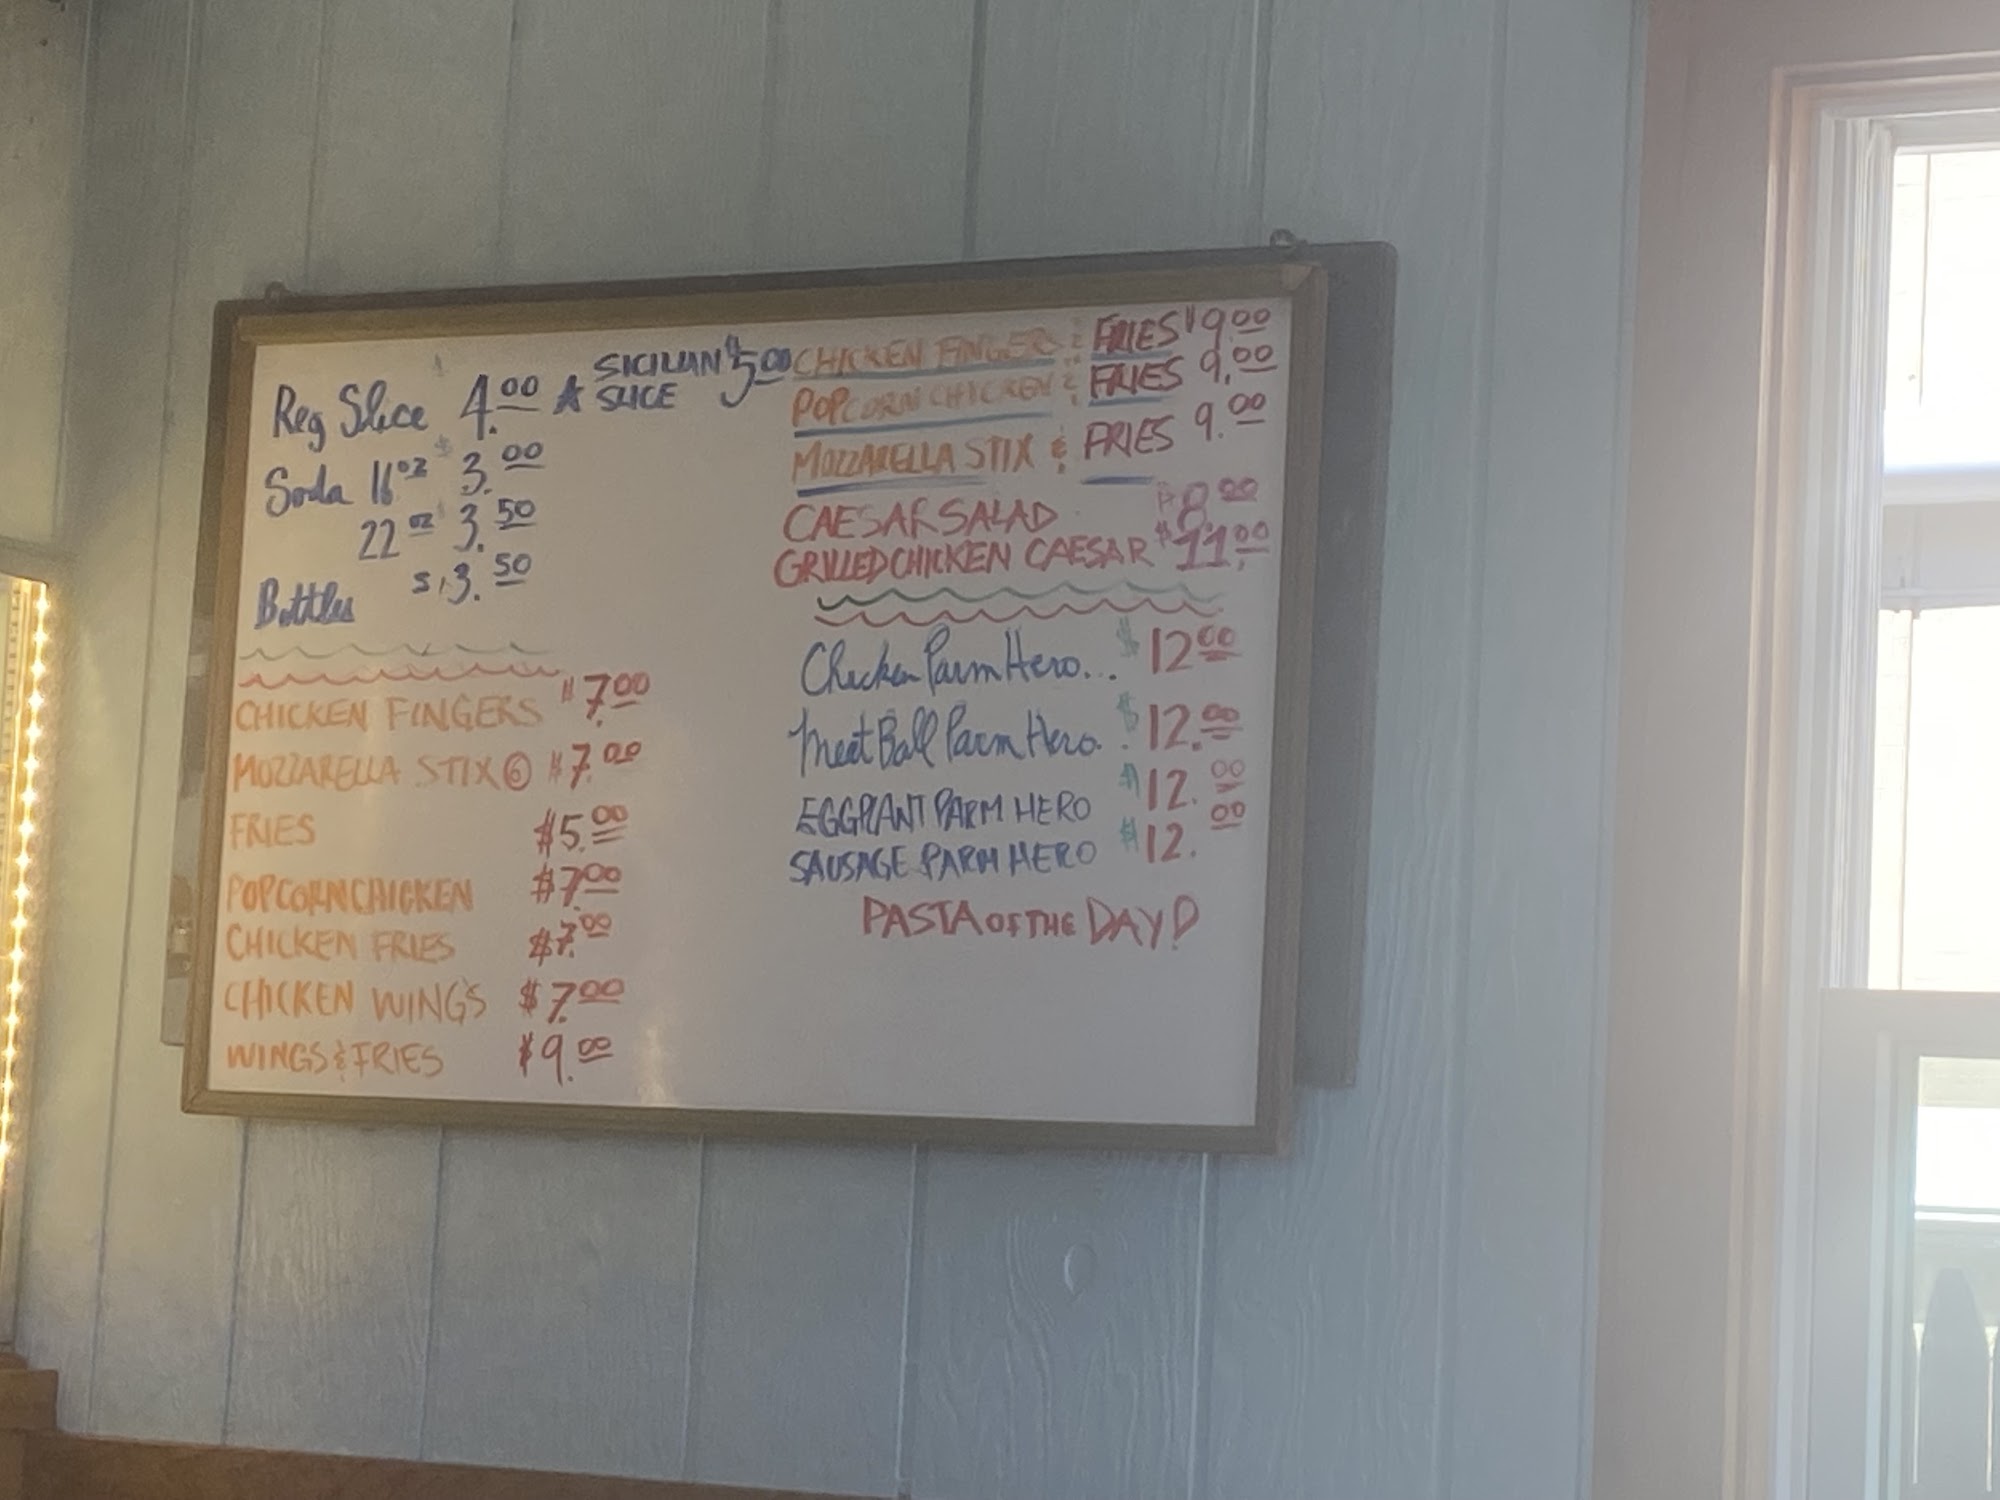 Reg Slice 4.00 ☆ SICILIAN SLICE $5.00
Soda 16oz $3.00
22oz $3.50
Bottles $3.50
CHICKEN FINGERS $7.00
MOZZARELLA STIX 6 $7.00
FRIES $5.00
POPCORN CHICKEN $7.00
CHICKEN FRIES $7.00
CHICKEN WINGS $7.00
WINGS & FRIES $9.00
CHICKEN FINGERS & FRIES $9.00
POPCORN CHICKEN & FRIES 9.00
MOZZARELLA STIX & FRIES 9.00
CAESAR SALAD $8.00
GRILLED CHICKEN CAESAR $11.00
Chicken Parm Hero... $12.00
Meat Ball Parm Hero.. $12.00
EGGPLANT PARM HERO $12.00
SAUSAGE PARM HERO $12.00
PASTA OF THE DAY?